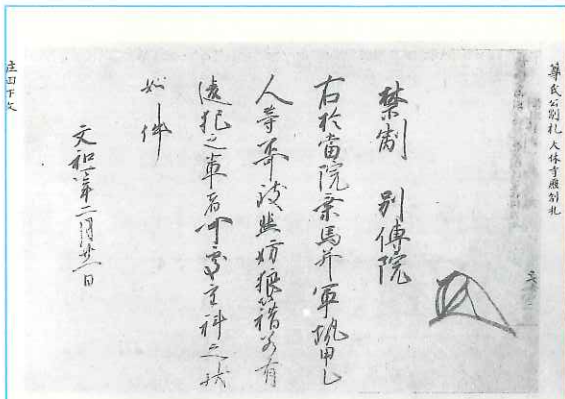 尊氏公制札 大休寺應制札
禁制 別傳院
右於當院乗馬并軍勢甲乙
人等不可致妨狼藉若有
違犯之輩者可處重科之状
如件
文和二年二月廿一日
庄田下文